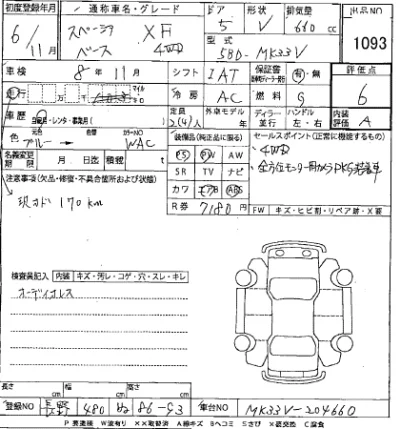 初度登録年月 通称車名・グレード ドア 形状 排気量 出品NO
6/11月 スペーシア ベース XF 4WD 5 V 660 cc 1093
型式 5BD-MK33V
車検 8年11月 シフト IAT 保証書 有・無 評価点
走行 冷房 AC 燃料 G 6
車歴 自家用・レンタ・事業用( ) 定員 2(4)人 外車モデル 年 ディーラー 並行 ハンドル 左・右 内装評価 A
色 元色 ブルー → 色替 カラーNO WAC
装備品(純正品に限る) セールスポイント(正常に機能するもの)
PS PW AW ・4WD
名義変更期限 月 日迄 積載 t
SR TV ナビ
注意事項(欠品・修復・不具合箇所および状態)
カワ エアB ABS
R券 7180円 FW キズ・ヒビ割・リペア跡・X要
170km
検査員記入 内装 キズ・汚レ・コゲ・穴・スレ・キレ
オーディオレス
長さ cm 幅 cm 高さ cm
登録NO 長野 480 ぬ 86-93 車台NO MK33V-204660
P要塗装 W波有り XX取替済 A線キズ Bヘコミ Sさび X要交換 C腐食